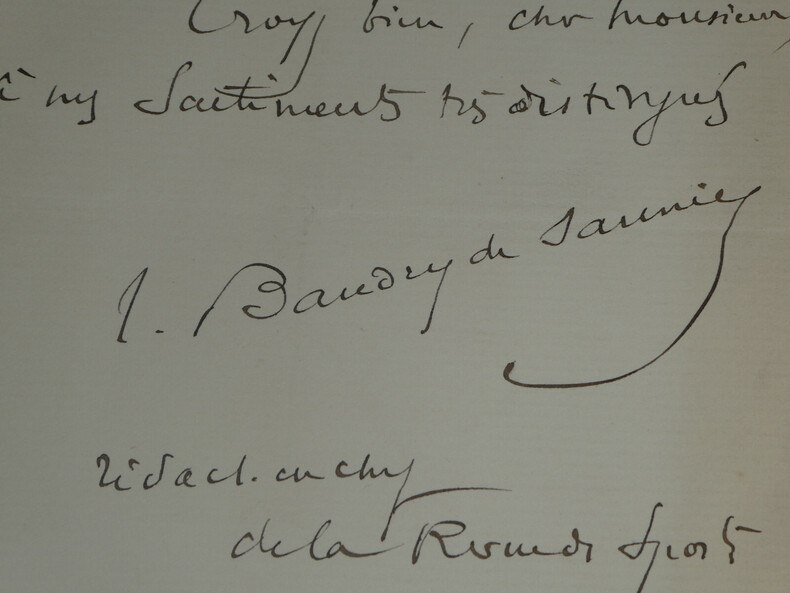 Croyez bien, cher monsieur,
à mes Sentiments très distingués
L. Baudry de Saunier
rédact. en chef
de la Revue des Sports